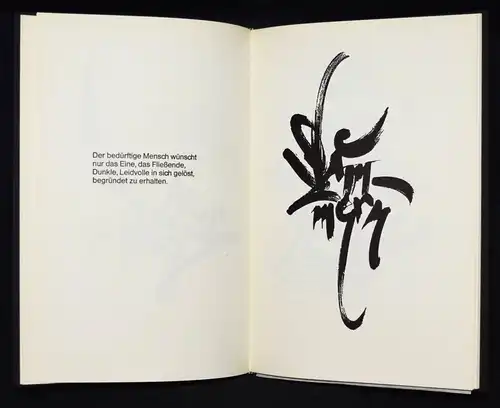 Der bedürftige Mensch wünscht
nur das Eine, das Fließende,
Dunkle, Leidvolle in sich gelöst,
begründet zu erhalten.
Däm
mern